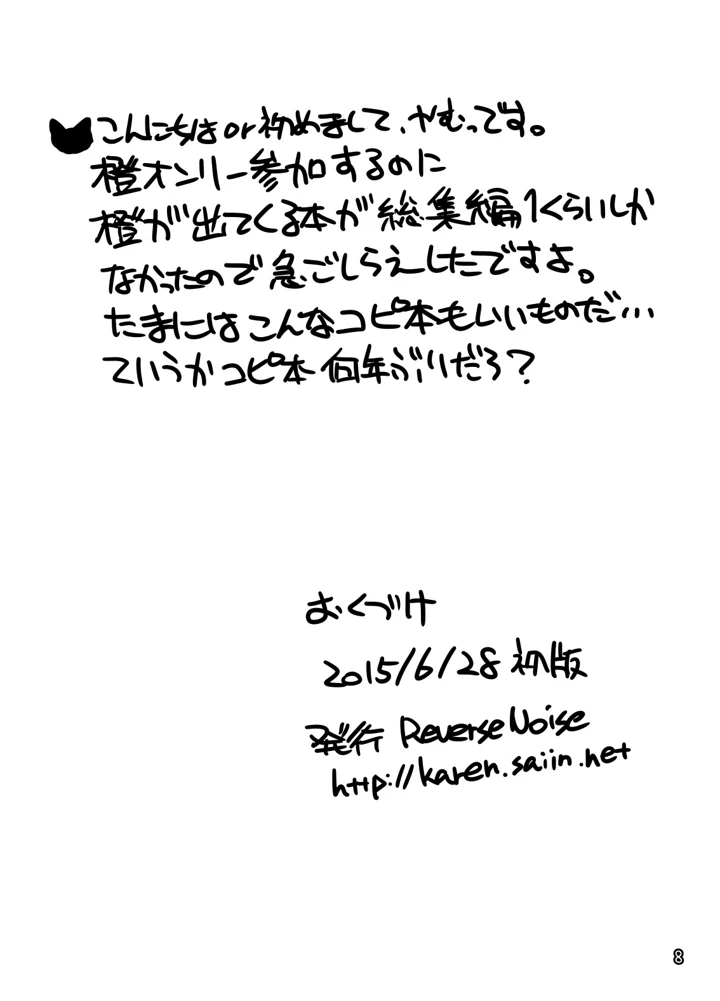 こんにちはor初めまして、やむっです。
橙オンリー参加するのに
橙が出てくる本が総集編1くらいしか
なかったので急ごしらえしたですよ。
たまにはこんなコピ本もいいものだ…
ていうかコピ本何年ぶりだろ?
おくづけ
2015/6/28 初版
発行 ReverseNoise
http://karen.saiin.net
8